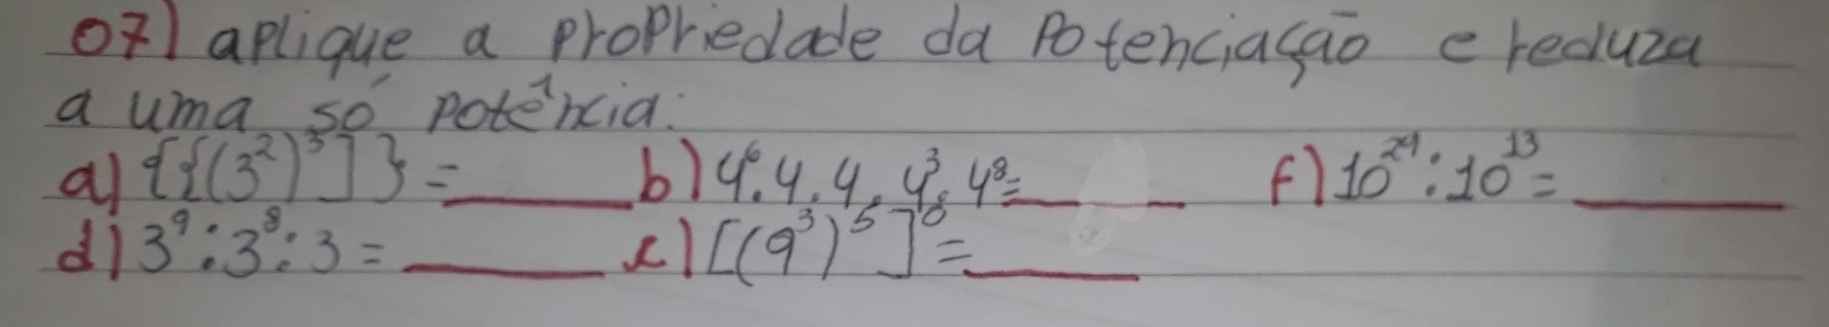 07) aplique a propriedade da Potenciação e reduza
a uma só potência:
a) {[(3²)³]} = ____ b) 4⁶.4.4.4³.4⁸= ____ f) 10²⁹:10¹³= ____
d) 3⁹:3⁸:3 = ____ c) [(9³)⁵]⁰= ____